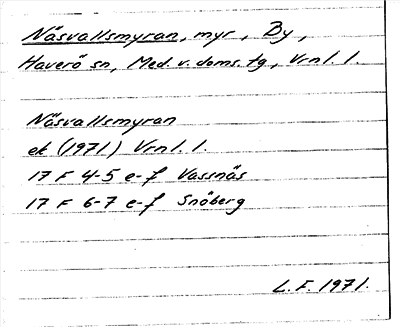 Näsvallsmyran, myr, By,
Haverö sn, Med. v. doms. tg, Vrnl. l.
Näsvallsmyran
ek (1971) Vrnl. l.
17 F 4-5 e-f Vassnäs
17 F 6-7 e-f Snöberg
L. F. 1971.